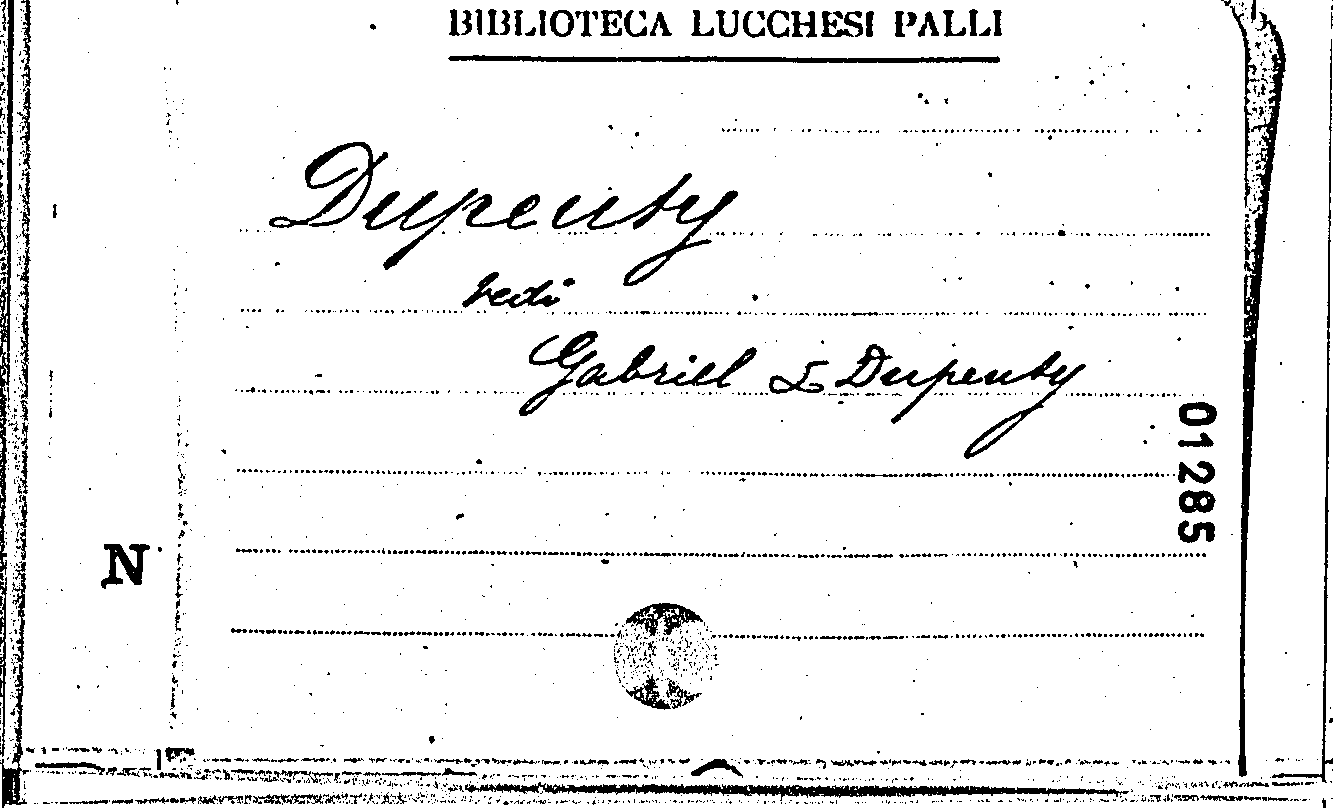 BIBLIOTECA LUCCHESI PALLI
Dupeuty
vedi
Gabriel & Dupeuty
01285
N